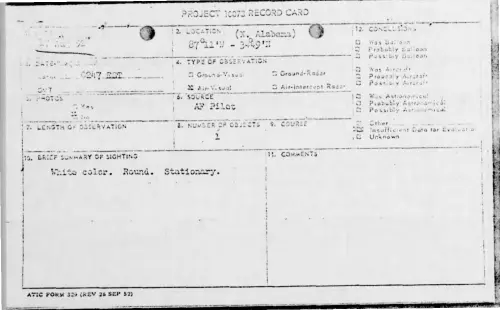 PROJECT 10073 RECORD CARD
2. LOCATION (N. Alabama)
87°11'W - 3449'N
12. CONCLUSIONS
Was Balloon
Probably Balloon
Possibly Balloon
4. TYPE OF OBSERVATION
Ground-Visual Ground-Radar
X Air-Visual Air-Intercept Radar
Was Aircraft
Probably Aircraft
Possibly Aircraft
5. PHOTOS
Yes
No
6. SOURCE
AF Pilot
Was Astronomical
Probably Astronomical
Possibly Astronomical
7. LENGTH OF OBSERVATION
8. NUMBER OF OBJECTS
1
9. COURSE
Other
Insufficient Data for Evaluation
Unknown
10. BRIEF SUMMARY OF SIGHTING
White color. Round. Stationary.
11. COMMENTS
ATIC FORM 329 (REV 26 SEP 52)